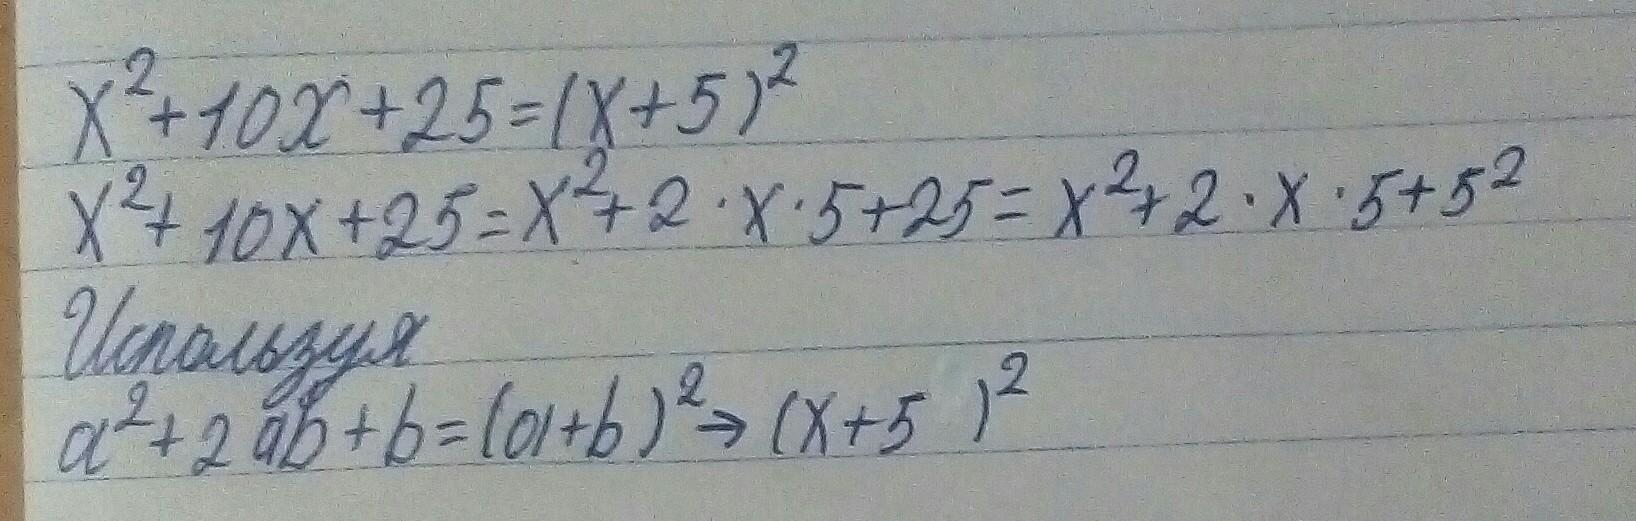 x²+10x+25=(x+5)²
x²+10x+25=x²+2·x·5+25=x²+2·x·5+5²
Используя
a²+2ab+b=(a+b)²→(x+5 )²